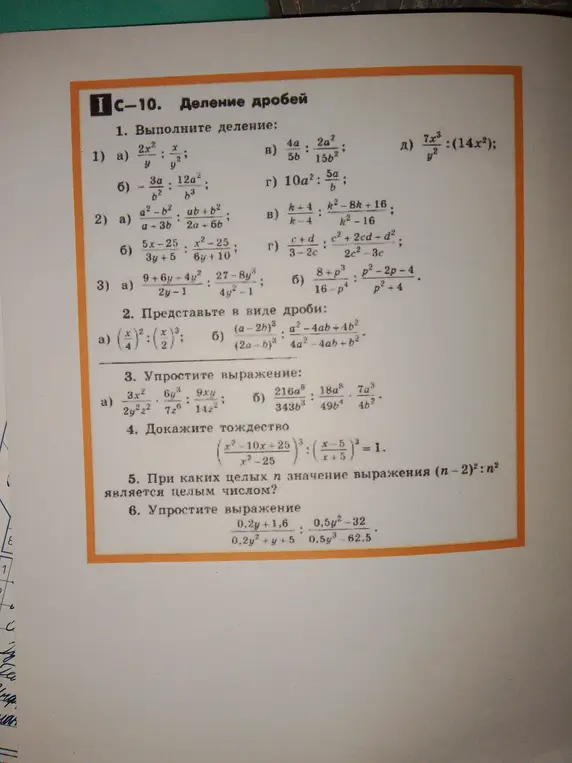 I С—10. Деление дробей
1. Выполните деление:
1) а) 2x²/y : x/y²; в) 4a/5b : 2a²/15b²; д) 7x³/y² : (14x²);
б) − 3a/b² : 12a²/b³; г) 10a² : 5a/b;
2) а) (a² − b²)/(a + 3b) : (ab + b²)/(2a + 6b); в) (k + 4)/(k − 4) : (k² − 8k + 16)/(k² − 16);
б) (5x − 25)/(3y + 5) : (x² − 25)/(6y + 10); г) (c + d)/(3 − 2c) : (c² + 2cd + d²)/(2c² − 3c);
3) а) (9 + 6y + 4y²)/(2y − 1) : (27 − 8y³)/(4y² − 1); б) (8 + p³)/(16 − p⁴) : (p² − 2p + 4)/(p² + 4).
2. Представьте в виде дроби:
а) (x/4)² : (x/2)³; б) (a − 2b)³/(2a − b)³ : (a² − 4ab + 4b²)/(4a² − 4ab + b²).
3. Упростите выражение:
а) 3x²/2y²z² · 6y³/7z⁶ : 9xy/14z²; б) 216a⁶/343b³ : 18a⁸/49b⁴ · 7a³/4b².
4. Докажите тождество
((x² − 10x + 25)/(x² − 25))³ : ((x − 5)/(x + 5))³ = 1.
5. При каких целых n значение выражения (n − 2)² : n²
является целым числом?
6. Упростите выражение
(0,2y + 1,6)/(0,2y² + y + 5) : (0,5y² − 32)/(0,5y³ − 62,5).